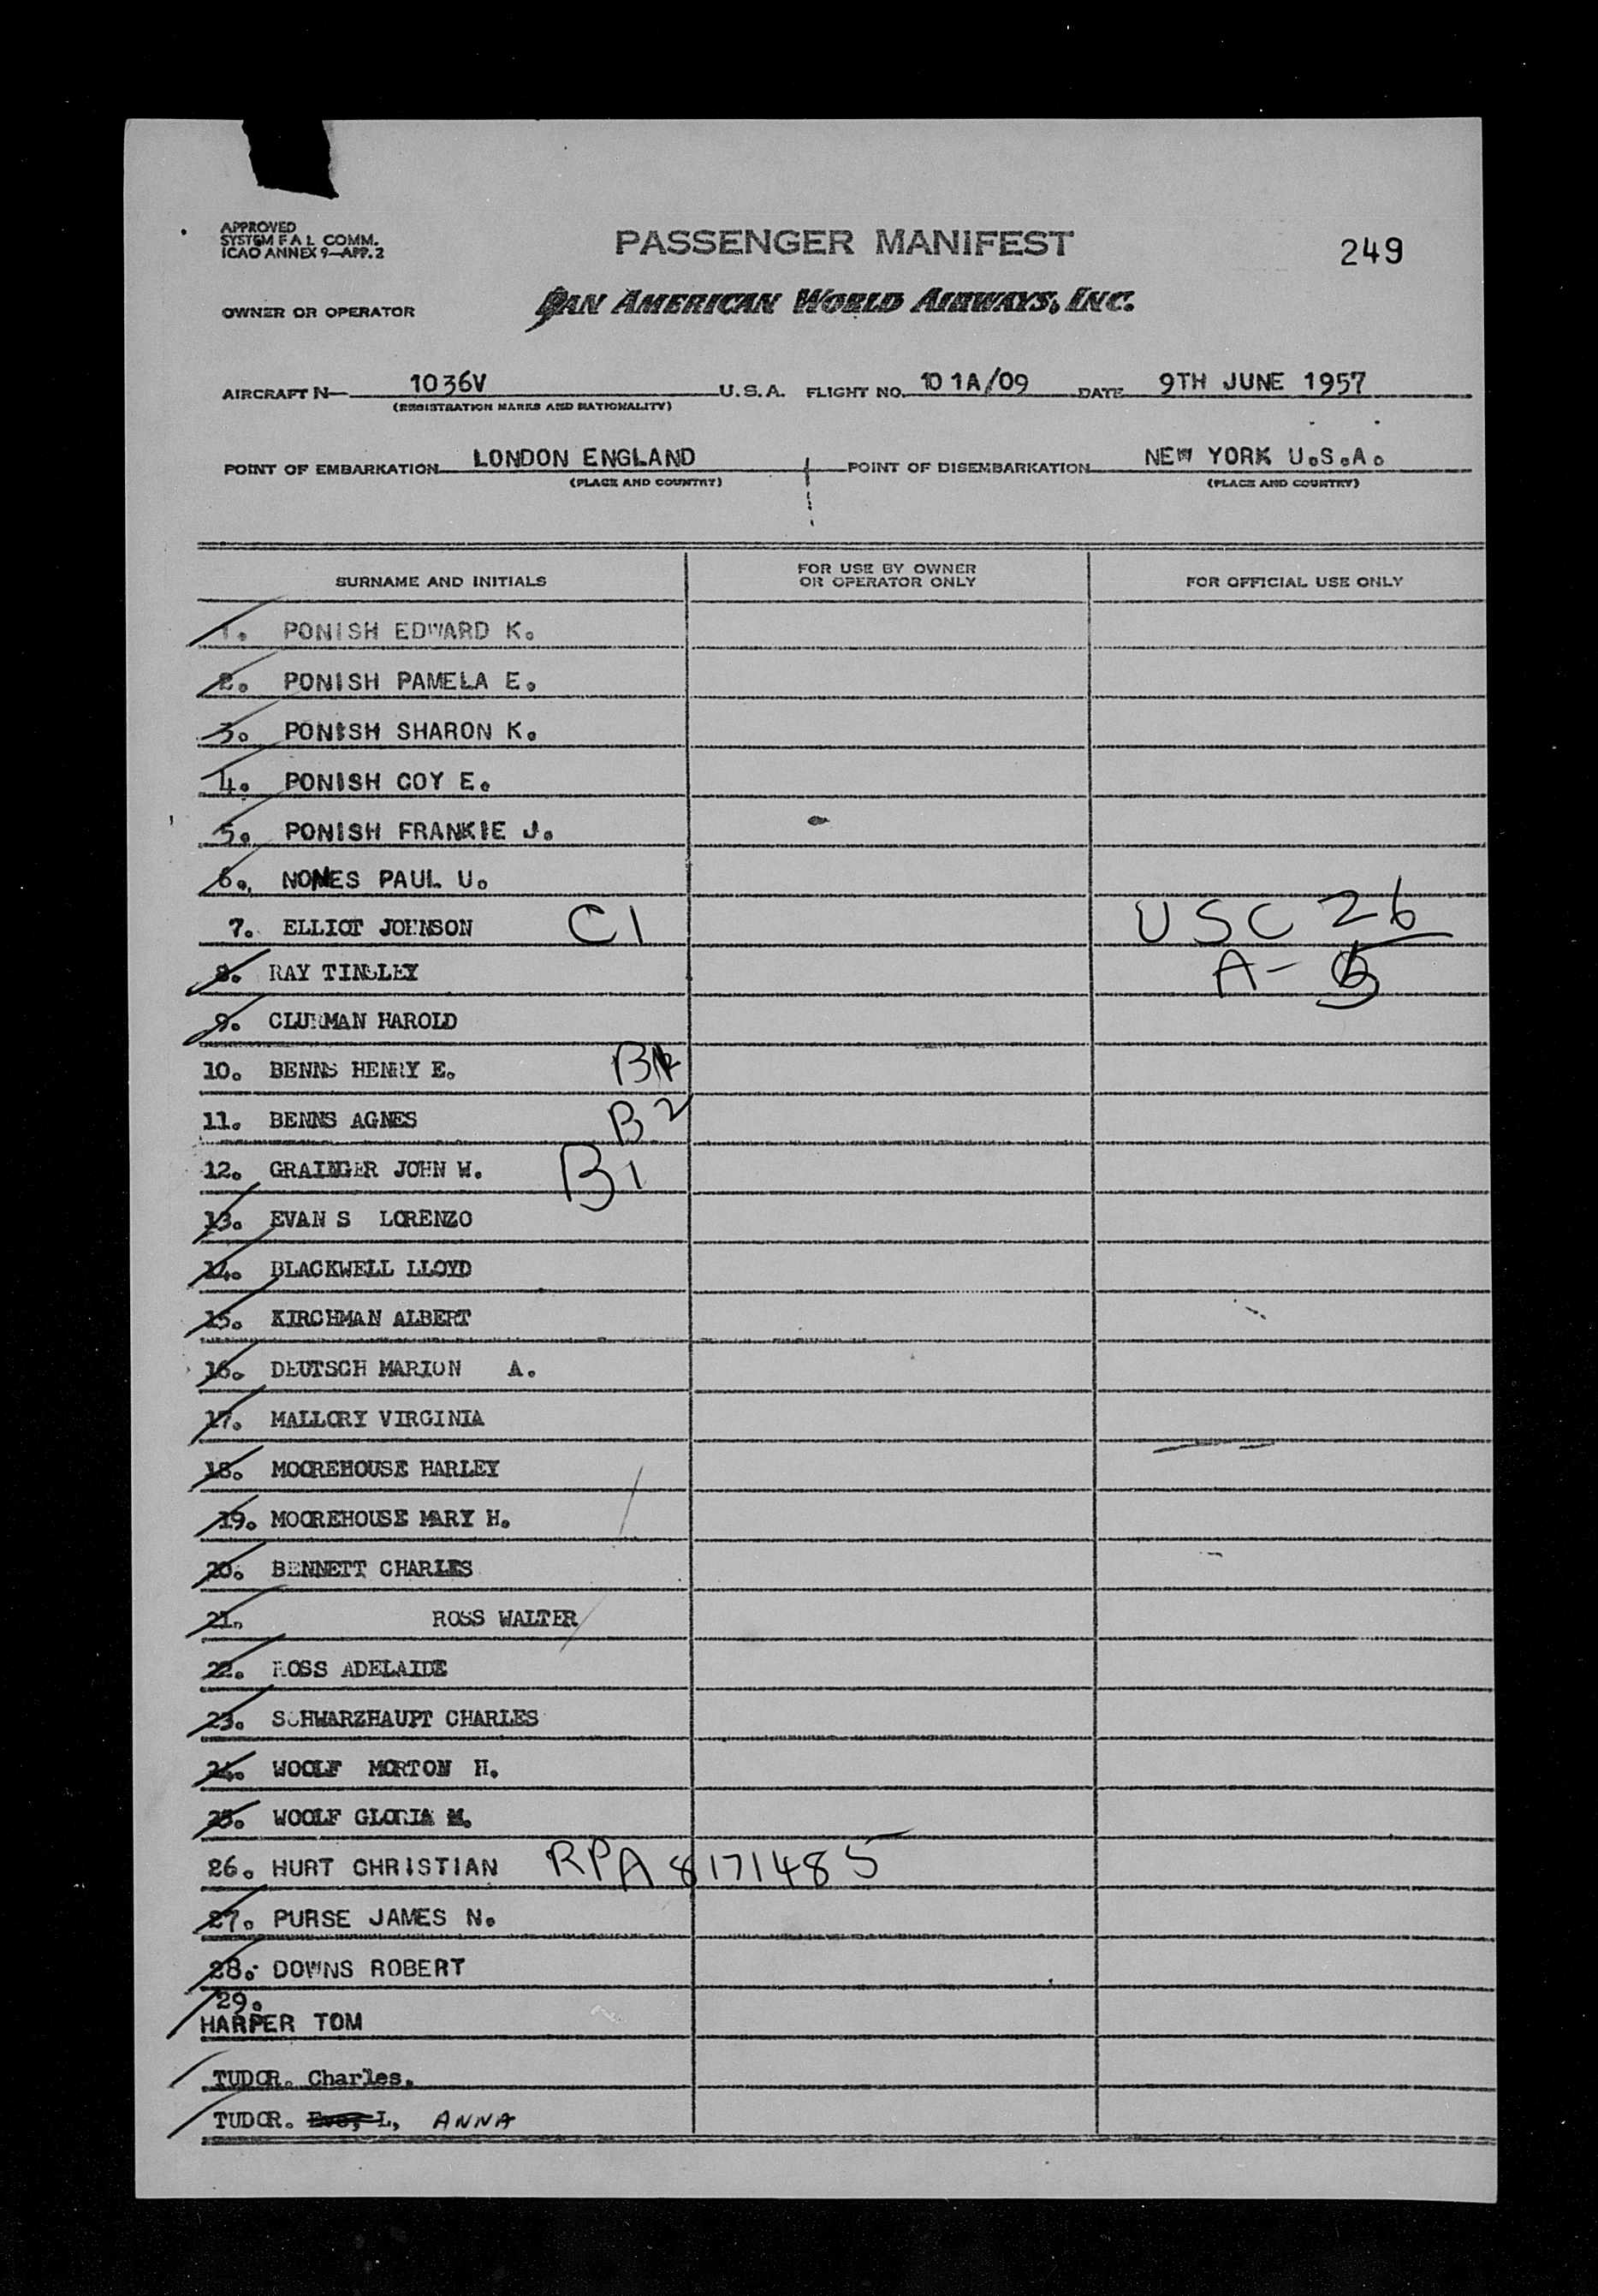 APPROVED
SYSTEM F A L COMM.
ICAO ANNEX 9—APP. 2
PASSENGER MANIFEST
249
OWNER OR OPERATOR
PAN AMERICAN WORLD AIRWAYS, INC.
AIRCRAFT N— 1036V U.S.A. FLIGHT NO. 101A/09 DATE 9TH JUNE 1957
(REGISTRATION MARKS AND NATIONALITY)
POINT OF EMBARKATION LONDON ENGLAND POINT OF DISEMBARKATION NEW YORK U.S.A.
(PLACE AND COUNTRY) (PLACE AND COUNTRY)
SURNAME AND INITIALS FOR USE BY OWNER OR OPERATOR ONLY FOR OFFICIAL USE ONLY
1. PONISH EDWARD K.
2. PONISH PAMELA E.
3. PONISH SHARON K.
4. PONISH COY E.
5. PONISH FRANKIE J.
6. NONES PAUL U.
7. ELLIOT JOHNSON C1 USC 26
8. RAY TINGLEY A-
9. CLURMAN HAROLD
10. BENNS HENRY E.
11. BENNS AGNES B2
12. GRAINGER JOHN W. B1
13. EVAN S LORENZO
14. BLACKWELL LLOYD
15. KIRCHMAN ALBERT
16. DEUTSCH MARION A.
17. MALLORY VIRGINIA
18. MOOREHOUSE HARLEY
19. MOOREHOUSE MARY H.
20. BENNETT CHARLES
21. ROSS WALTER
22. ROSS ADELAIDE
23. SCHWARZHAUPT CHARLES
24. WOOLF MORTON H.
25. WOOLF GLORIA M.
26. HURT CHRISTIAN RPA 8171485
27. PURSE JAMES N.
28. DOWNS ROBERT
29.
HARPER TOM
TUDOR. Charles.
TUDOR. Eve, L, ANNA